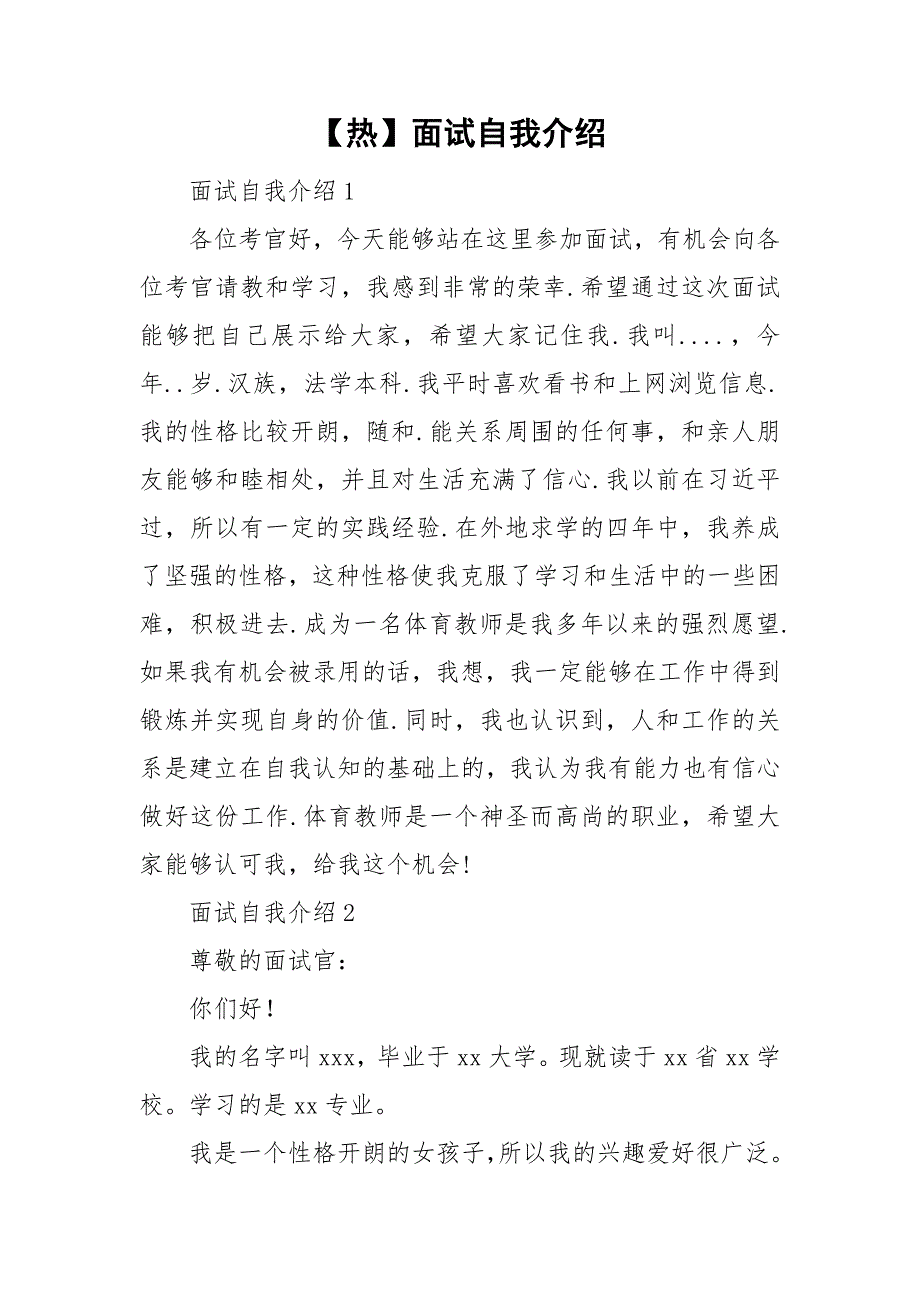 【热】面试自我介绍
面试自我介绍1
各位考官好，今天能够站在这里参加面试，有机会向各
位考官请教和学习，我感到非常的荣幸.希望通过这次面试
能够把自己展示给大家，希望大家记住我.我叫....，今
年..岁.汉族，法学本科.我平时喜欢看书和上网浏览信息.
我的性格比较开朗，随和.能关系周围的任何事，和亲人朋
友能够和睦相处，并且对生活充满了信心.我以前在习近平
过，所以有一定的实践经验.在外地求学的四年中，我养成
了坚强的性格，这种性格使我克服了学习和生活中的一些困
难，积极进去.成为一名体育教师是我多年以来的强烈愿望.
如果我有机会被录用的话，我想，我一定能够在工作中得到
锻炼并实现自身的价值.同时，我也认识到，人和工作的关
系是建立在自我认知的基础上的，我认为我有能力也有信心
做好这份工作.体育教师是一个神圣而高尚的职业，希望大
家能够认可我，给我这个机会!
面试自我介绍2
尊敬的面试官：
你们好！
我的名字叫 xxx，毕业于 xx 大学。现就读于 xx 省 xx 学
校。学习的是 xx 专业。
我是一个性格开朗的女孩子，所以我的兴趣爱好很广泛。